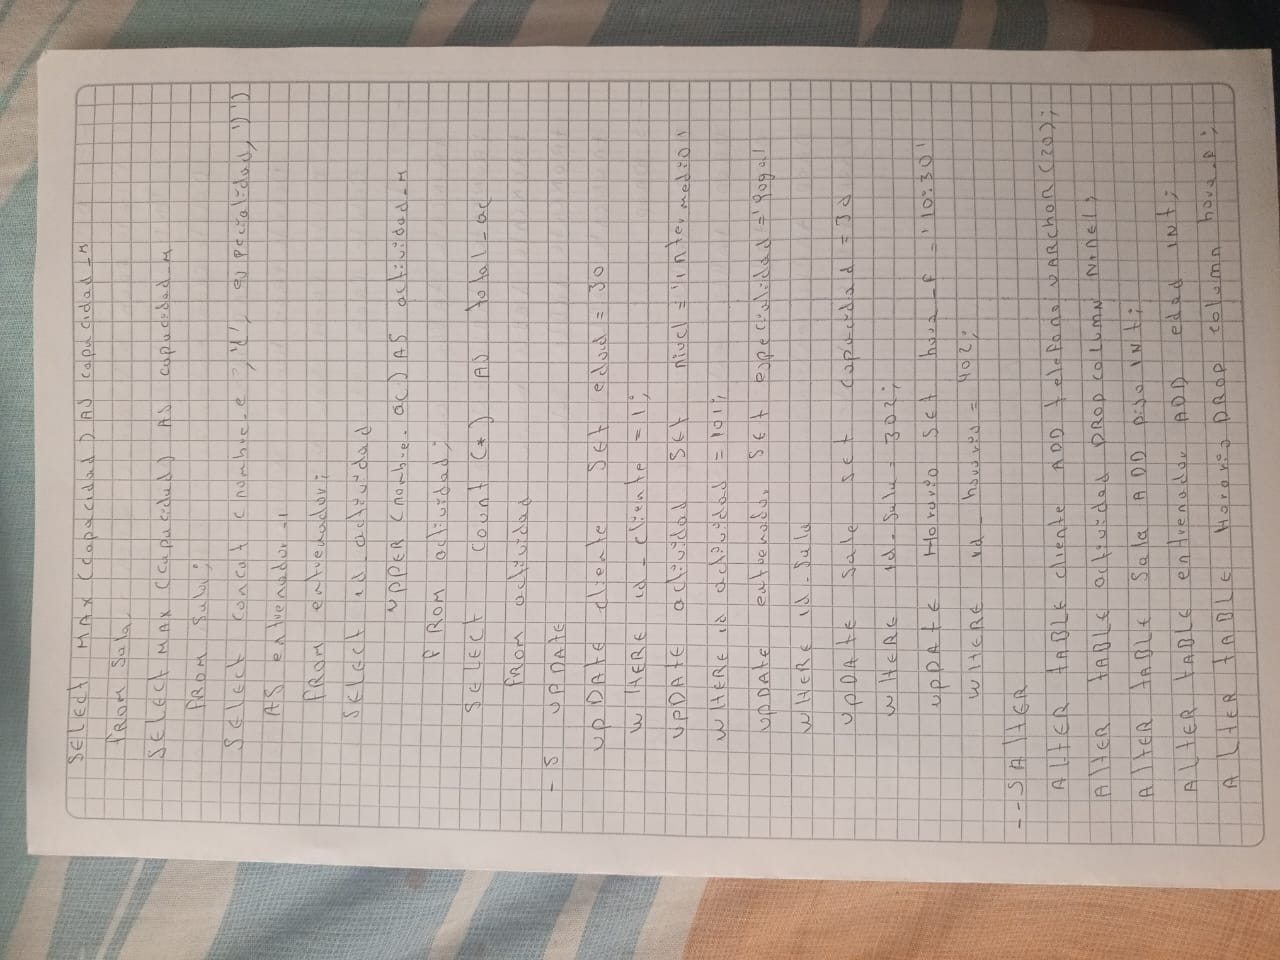 SELECT MAX (capacidad) AS capacidad_M
FROM Sala
SELECT MAX (capacidad) AS capacidad_M
FROM Sala;
SELECT concat (nombre_e, '(', especialidad, ')')
AS entrenador_1
FROM entrenador;
SELECT id_actividad
UPPER (nombre_ac) AS actividad_M
FROM actividad;
SELECT count (*) AS total_ac
FROM actividad
- 5 UPDATE
UPDATE cliente SET edad = 30
WHERE id_cliente = 1;
UPDATE actividad SET nivel = 'intermedio'
WHERE id actividad = 101;
UPDATE entrenador SET especialidad = 'yoga'
WHERE id_Sala
UPDATE Sala SET capacidad = 30
WHERE id_Sala = 302;
UPDATE Horario SET hora_f = '10:30'
WHERE id_horario = 402;
--5 AltER
AltER tABLE cliente ADD telefono VARchar(20);
AltER tABLE actividad DROP column Nivel;
AltER tABLE Sala ADD piso INt;
AltER tABLE entrenador ADD edad INt;
AltER tABLE Horario DROP column hora_f;